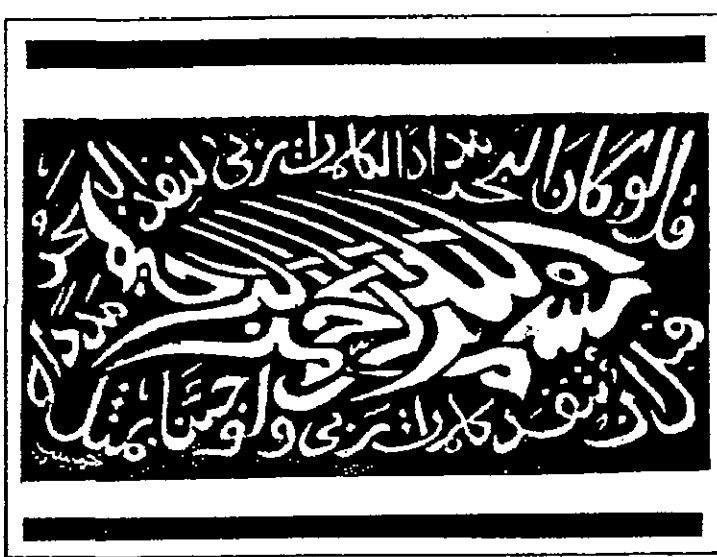 قل لو كان البحر مدادا لكلمات ربي لنفد البحر
بسم الله الرحمن الرحيم
قبل أن تنفد كلمات ربي ولو جئنا بمثله مددا